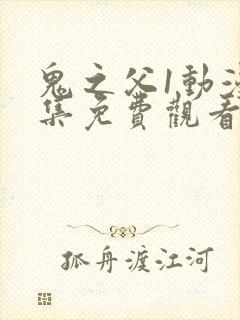 鬼之父1動漫
集免費觀看
孤舟渡江河